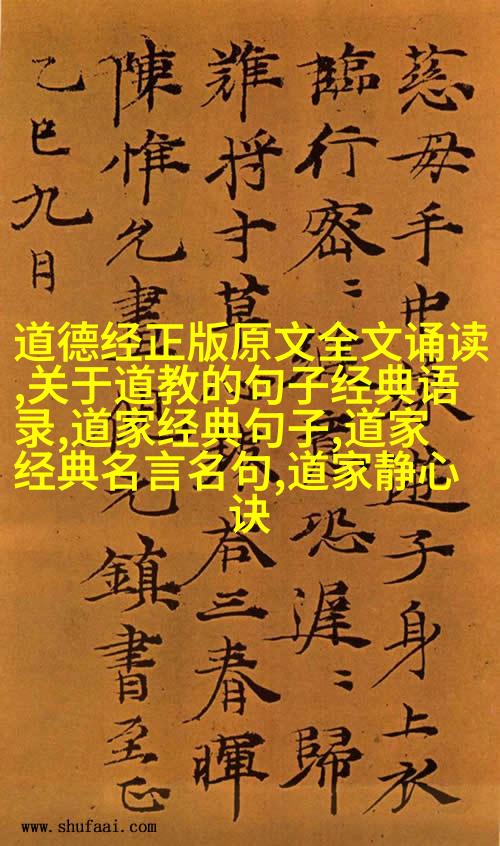 慈母手中 遊子身上衣
臨行密〻 意恐遲〻歸
難將寸草 三春暉
陳惟允書 鎮書至正
乙巳九月
道德经正版原文全文诵读
,关于道教的句子经典语
录,道家经典句子,道家
经典名言名句,道家静心
诀
www.shufaai.com